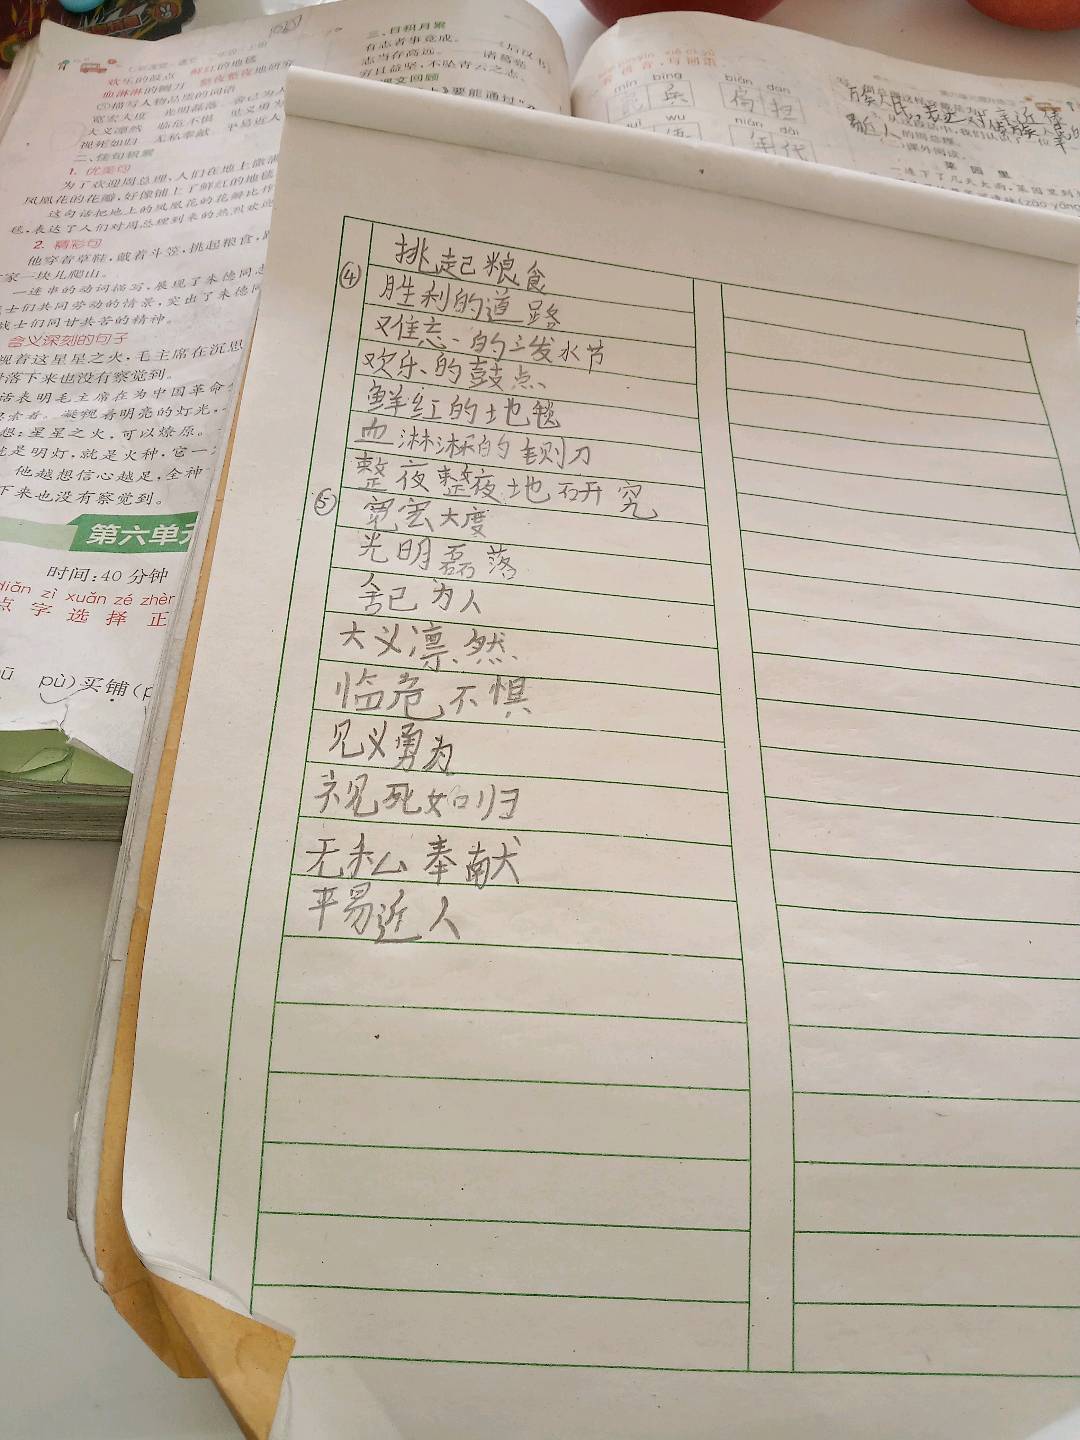 欢乐的鼓点 鲜红的地毯
血淋淋的铡刀 整夜整夜地研究
⑤描写人物品质的词语
宽宏大度 光明磊落 舍己为人
大义凛然 临危不惧 见义勇为
视死如归 无私奉献 平易近人
二、佳句积累
1. 优美句
为了欢迎周总理,人们在地上撒满
凤凰花的花瓣,好像铺上了鲜红的地毯
这句话把地上的凤凰花的花瓣比作
毯,表达了人们对周总理到来的热烈欢迎
2. 精彩句
他穿着草鞋,戴着斗笠,挑起粮食,跟
家一块儿爬山。
一连串的动词描写,展现了朱德同志
士们共同劳动的情景,突出了朱德同
战士们同甘共苦的精神。
含义深刻的句子
视着这星星之火,毛主席在沉思
落下来也没有察觉到。
话表明毛主席在为中国革命
索着。凝视着明亮的灯光,
想:星星之火,可以燎原。
是明灯,就是火种,它一
他越想信心越足,全神
下来也没有察觉到。
第六单元
时间:40 分钟
diǎn zì xuǎn zé zhèn
点 字 选 择 正
pù)买铺(p
三、日积月累
有志者事竟成。 《后汉书
志当存高远。 诸葛亮
穷且益坚,不坠青云之志。
课文回顾
》要能通过“
mín bīng
兵
biǎn dan
扁担
wu
nián dài
年代
近人
的周总理。
(二)课外阅读。
菜园里
一连下了几天大雨,菜园里
④ 挑起粮食
胜利的道路
难忘的泼水节
欢乐的鼓点
鲜红的地毯
血淋淋的铡刀
整夜整夜地研究
⑤ 宽宏大度
光明磊落
舍己为人
大义凛然
临危不惧
见义勇为
视死如归
无私奉献
平易近人